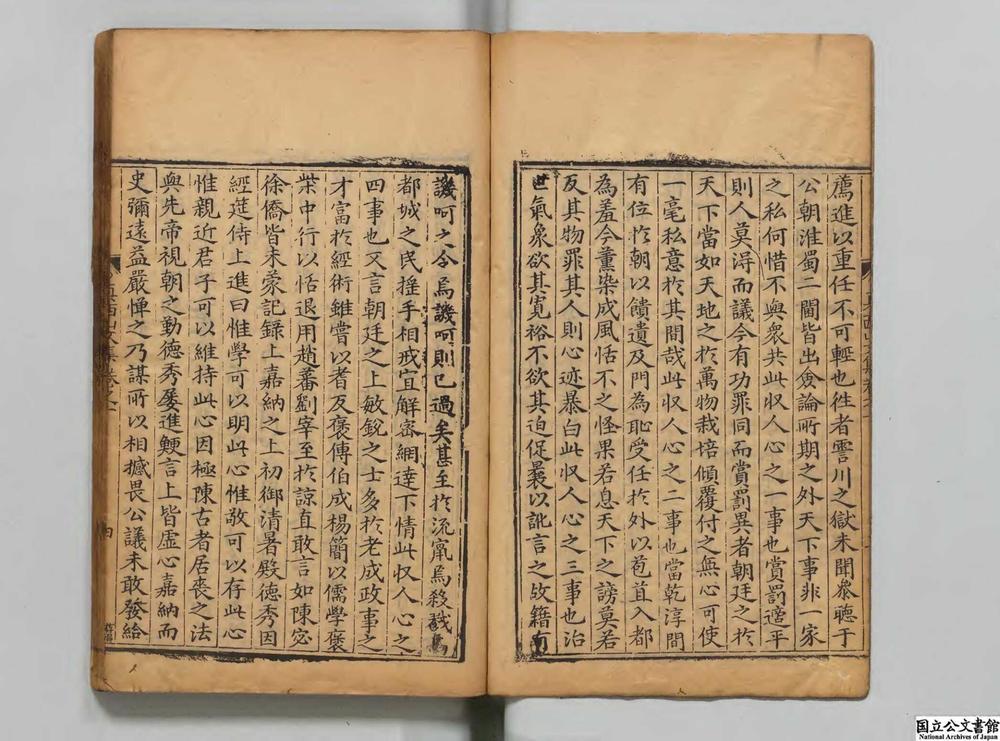 薦進以重任不可輕也往者霅川之獄未聞叅聽于
公朝淮蜀二閫皆出僉論所期之外天下事非一家
之私何惜不與衆共此収人心之一事也賞罰適平
則人莫得而議今有功罪同而賞罰異者朝廷之於
天下當如天地之於萬物栽培傾覆付之無心可使
一毫私意於其間哉此収人心之二事也當乾淳間
有位於朝以饋遺及門為恥受任於外以苞苴入都
為羞今薰染成風恬不之怪果若息天下之謗莫若
反其物罪其人則心迹暴白此収人心之三事也治
世氣象欲其寛裕不欲其迫促曩以訛言之故籍有
譏呵之令焉譏呵則已過矣甚至於流竄焉殺戮焉
都城之民揺手相戒宜解密網達下情此収人心之
四事也又言朝廷之上敏銳之士多於老成政事之
才富於經術雖嘗以耆及褒傅伯成楊簡以儒學褒
柴中行以恬退用趙蕃劉宰至於諒直敢言如陳宓
徐僑皆未蒙記録上嘉納之上初御清暑殿德秀因
經筵侍上進曰惟學可以明此心惟敬可以存此心
惟親近君子可以維持此心因極陳古者居喪之法
與先帝視朝之勤德秀屡進鯁言上皆虛心嘉納而
史彌遠益嚴憚之乃謀所以相撼畏公議未敢發給
四
国立公文書館
National Archives of Japan